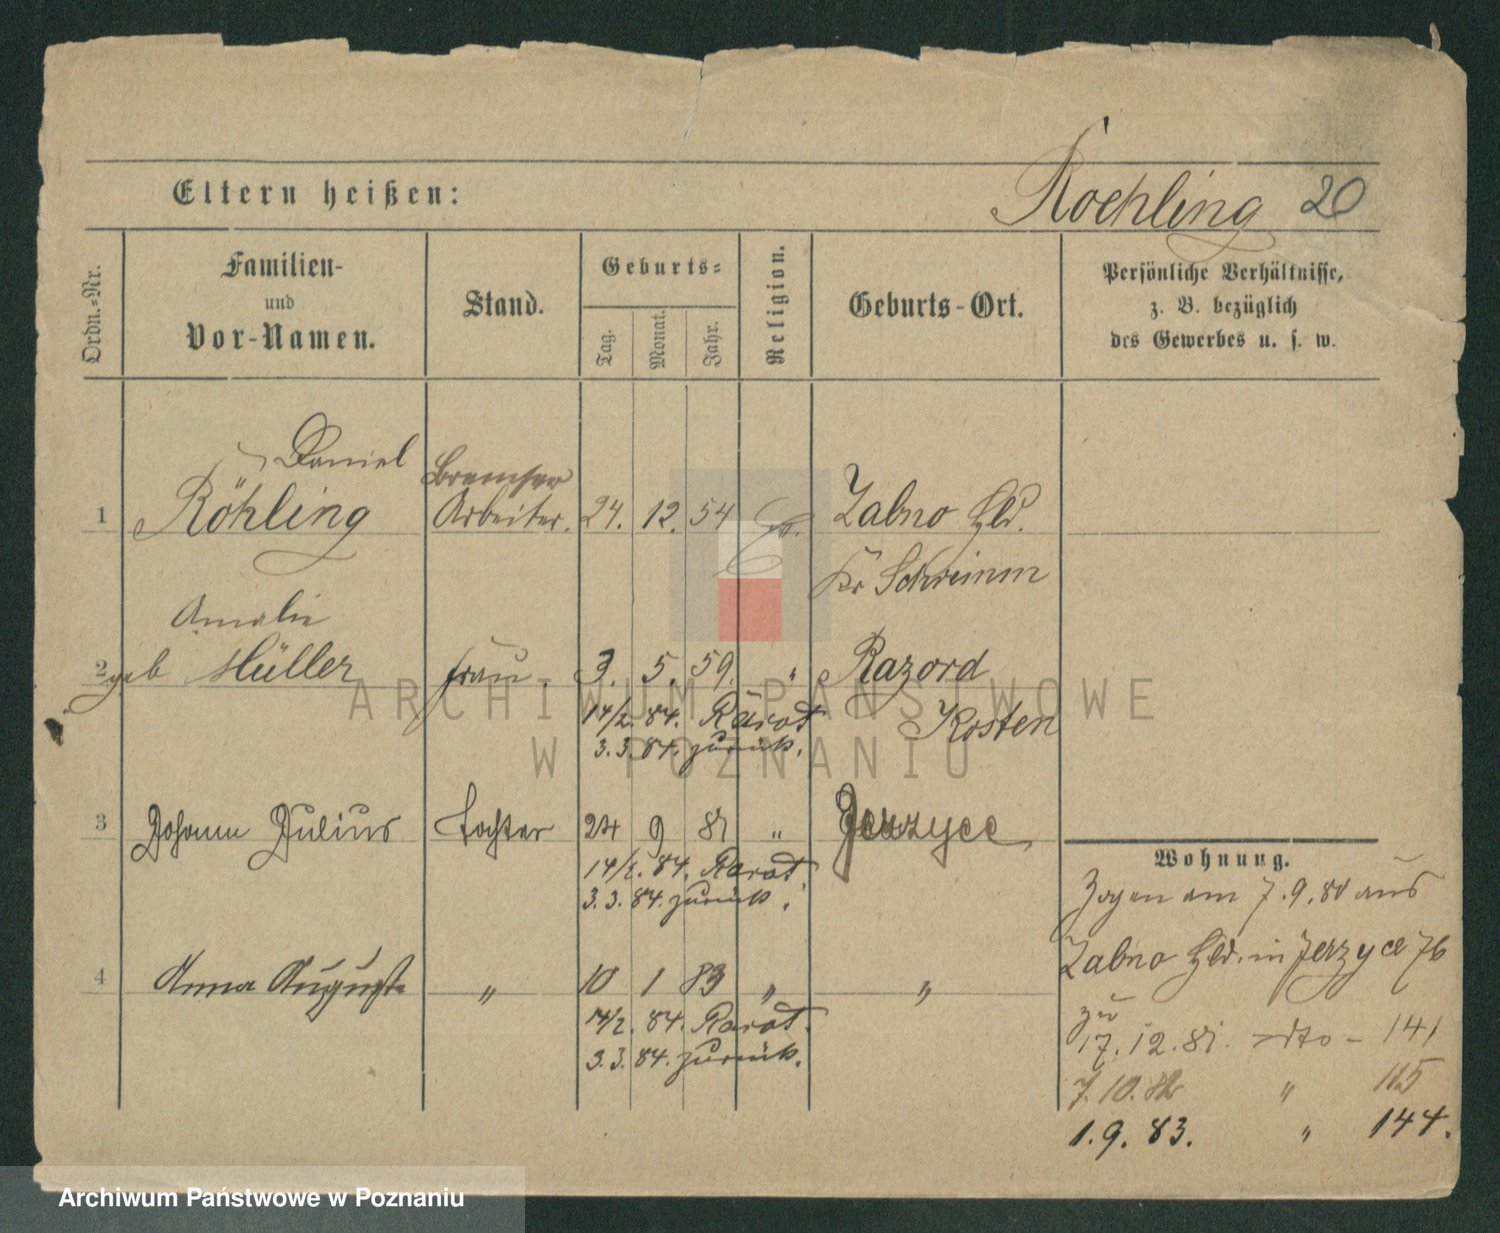 Eltern heißen:
Roehling 20
Ordn.-Nr.
Familien-
und
Vor-Namen.
Stand.
Geburts-
Tag.
Monat.
Jahr.
Religion.
Geburts-Ort.
Persönliche Verhältnisse,
z. B. bezüglich
des Gewerbes u. s. w.
Daniel
Bremser
1 Röhling Arbeiter. 24. 12. 54 Zabno Hld.
Kr Schrimm
Amalie
2 geb Müller Frau. 3. 5. 59. " Razord
14/2. 84. Kosten
3. 3. 84. zurück.
3 Johann Julius Tochter 24 9 81 " Jerzyce
14/2. 84.
3. 3. 84. zurück.
4 Anna Auguste " 10 1 83 " "
14/2. 84.
3. 3. 84. zurück.
Wohnung.
Zogen am 7. 9. 80 aus
Zabno Hld. in Jerzyce 76
zu
17. 12. 81. dto - 141
7. 10. 82 " 115
1. 9. 83. " 144.
ARCHIWUM PAŃSTWOWE
W POZNANIU
Archiwum Państwowe w Poznaniu